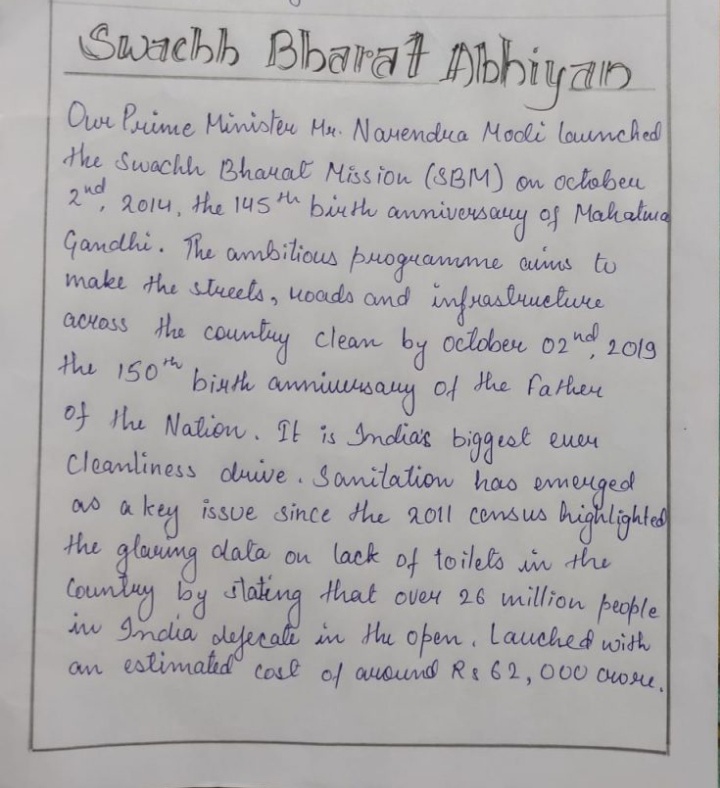 Swachh Bharat Abhiyan
Our Prime Minister Mr. Narendra Modi launched
the Swachh Bharat Mission (SBM) on october
2nd, 2014, the 145th birth anniversary of Mahatma
Gandhi. The ambitious programme aims to
make the streets, roads and infrastructure
across the country clean by October 02nd, 2019
the 150th birth anniversary of the father
of the Nation. It is India's biggest ever
cleanliness drive. Sanitation has emerged
as a key issue since the 2011 census highlighted
the glaring data on lack of toilets in the
country by stating that over 26 million people
in India defecate in the open. Lauched with
an estimated cost of around Rs 62,000 crore.